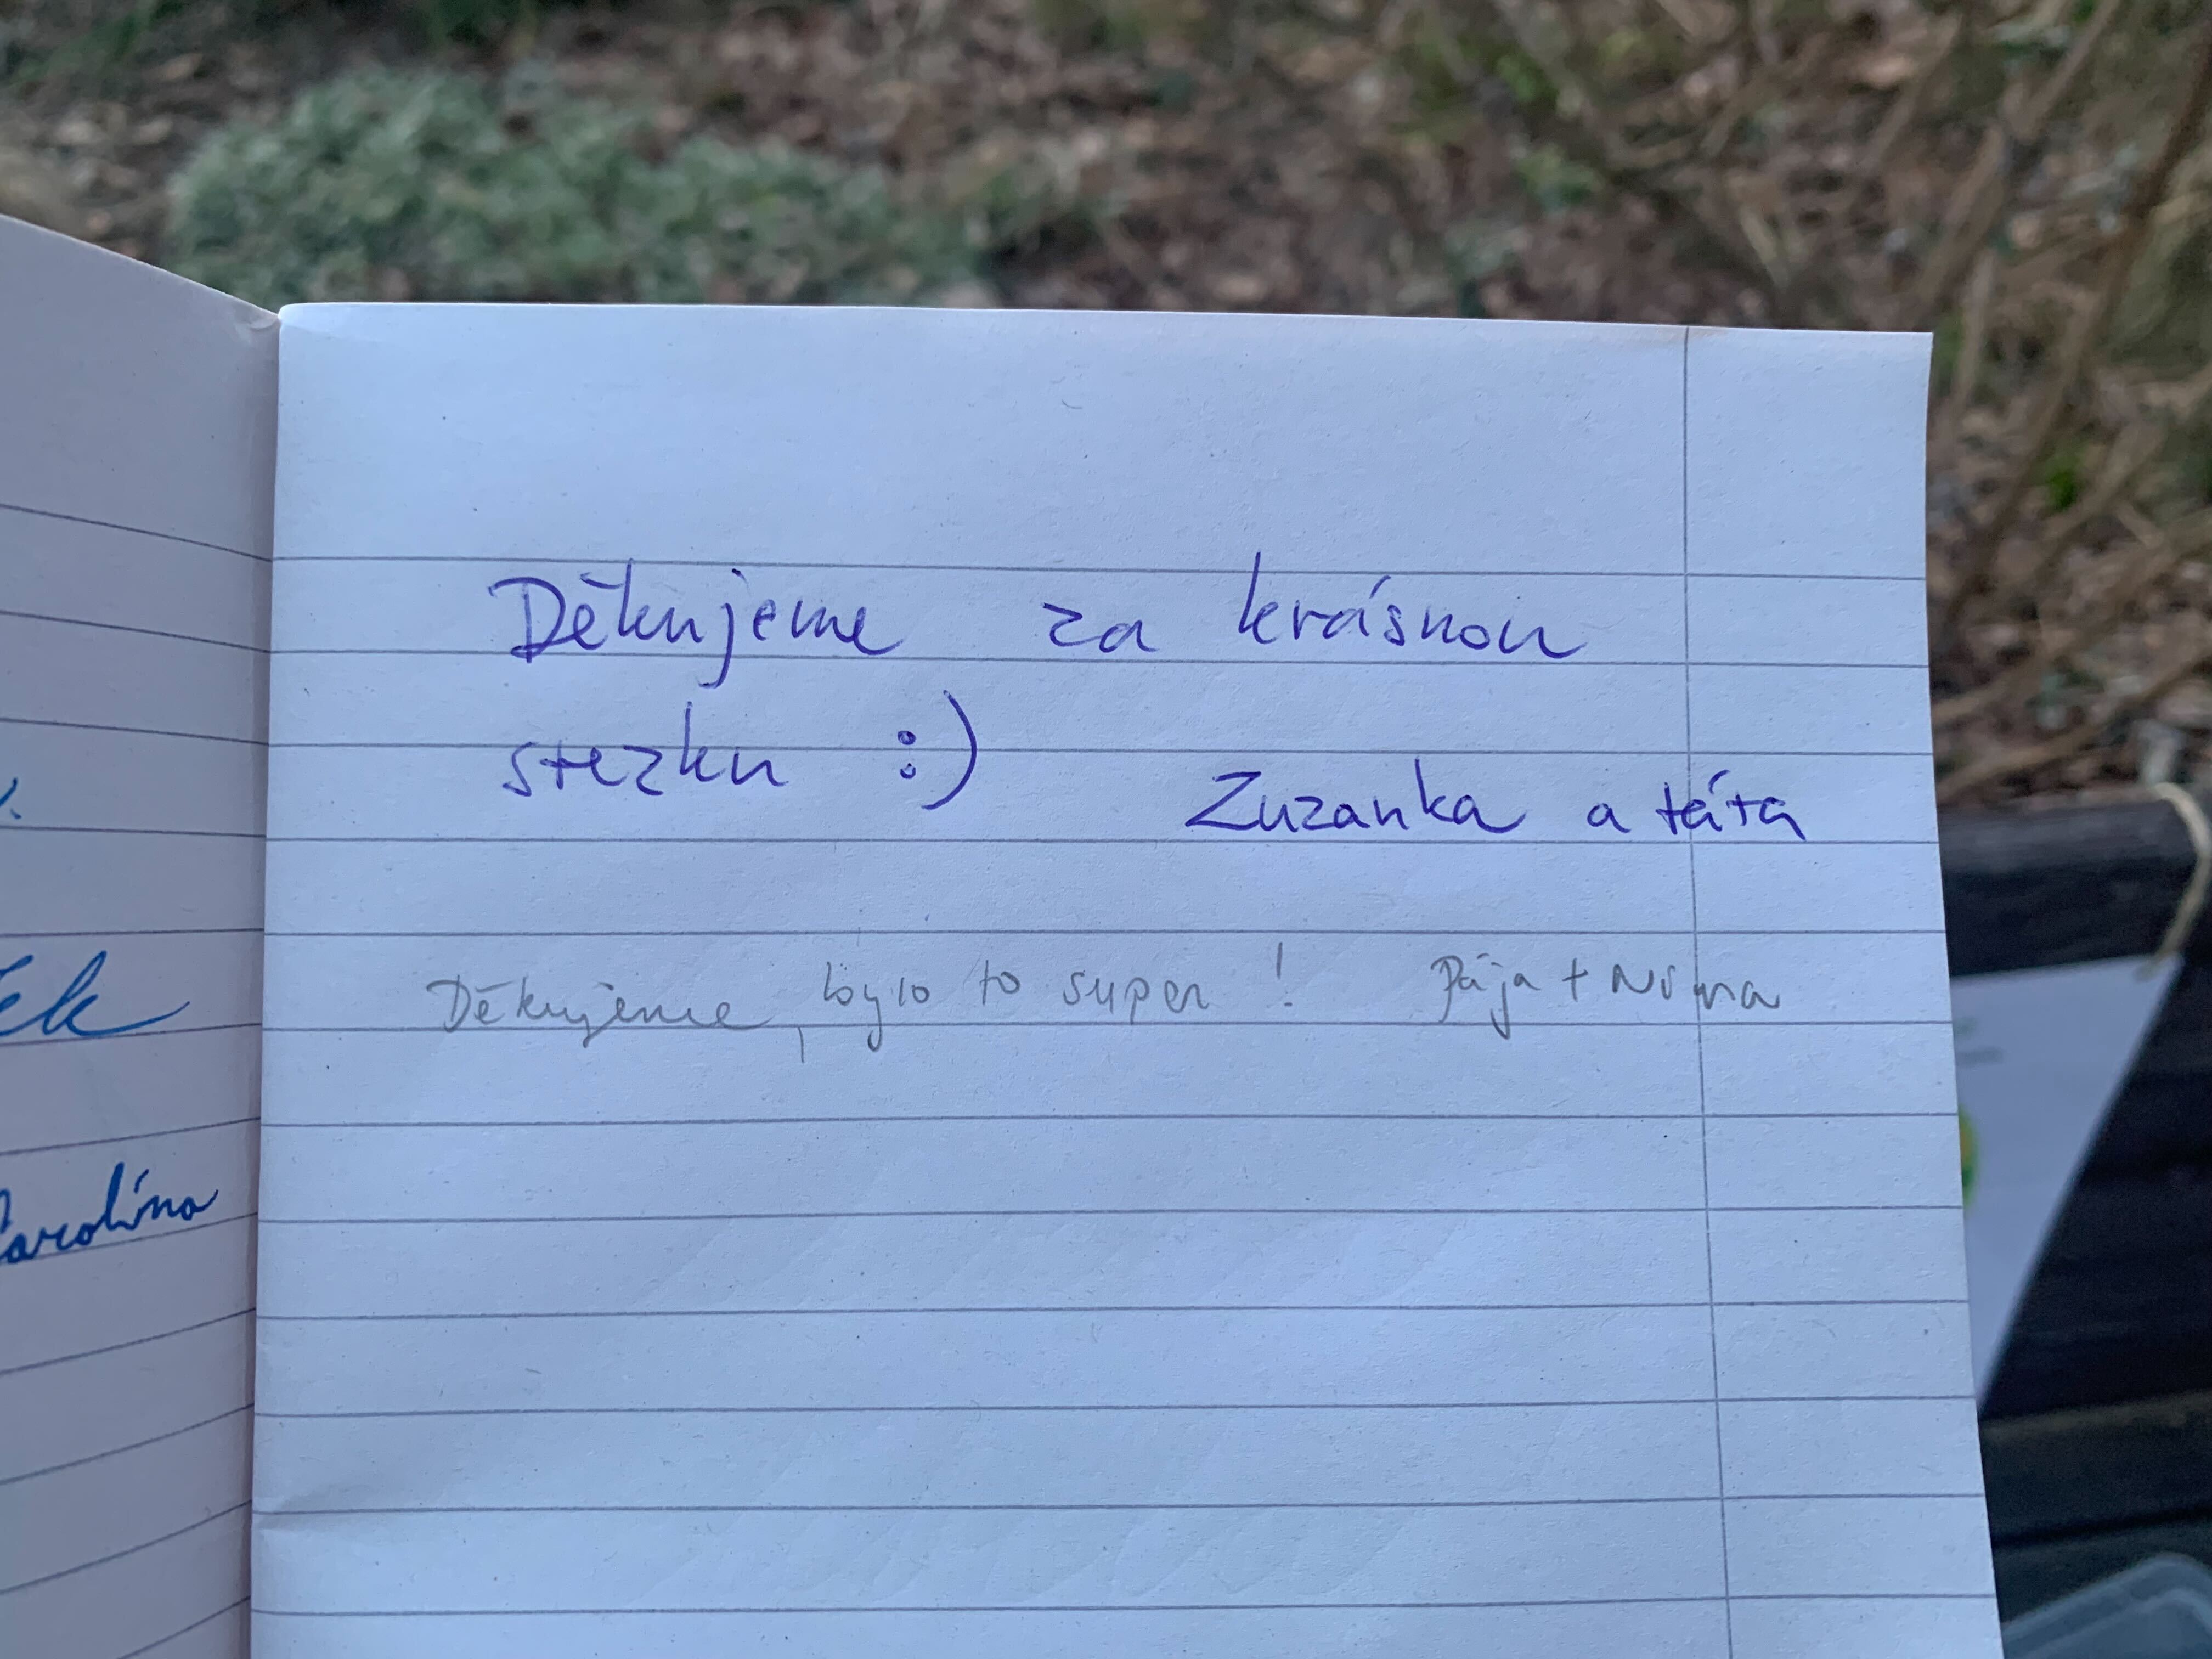 Děkujeme za krásnou
stezku :)
Zuzanka a táta
Děkujeme, bylo to super! Pája + Nina